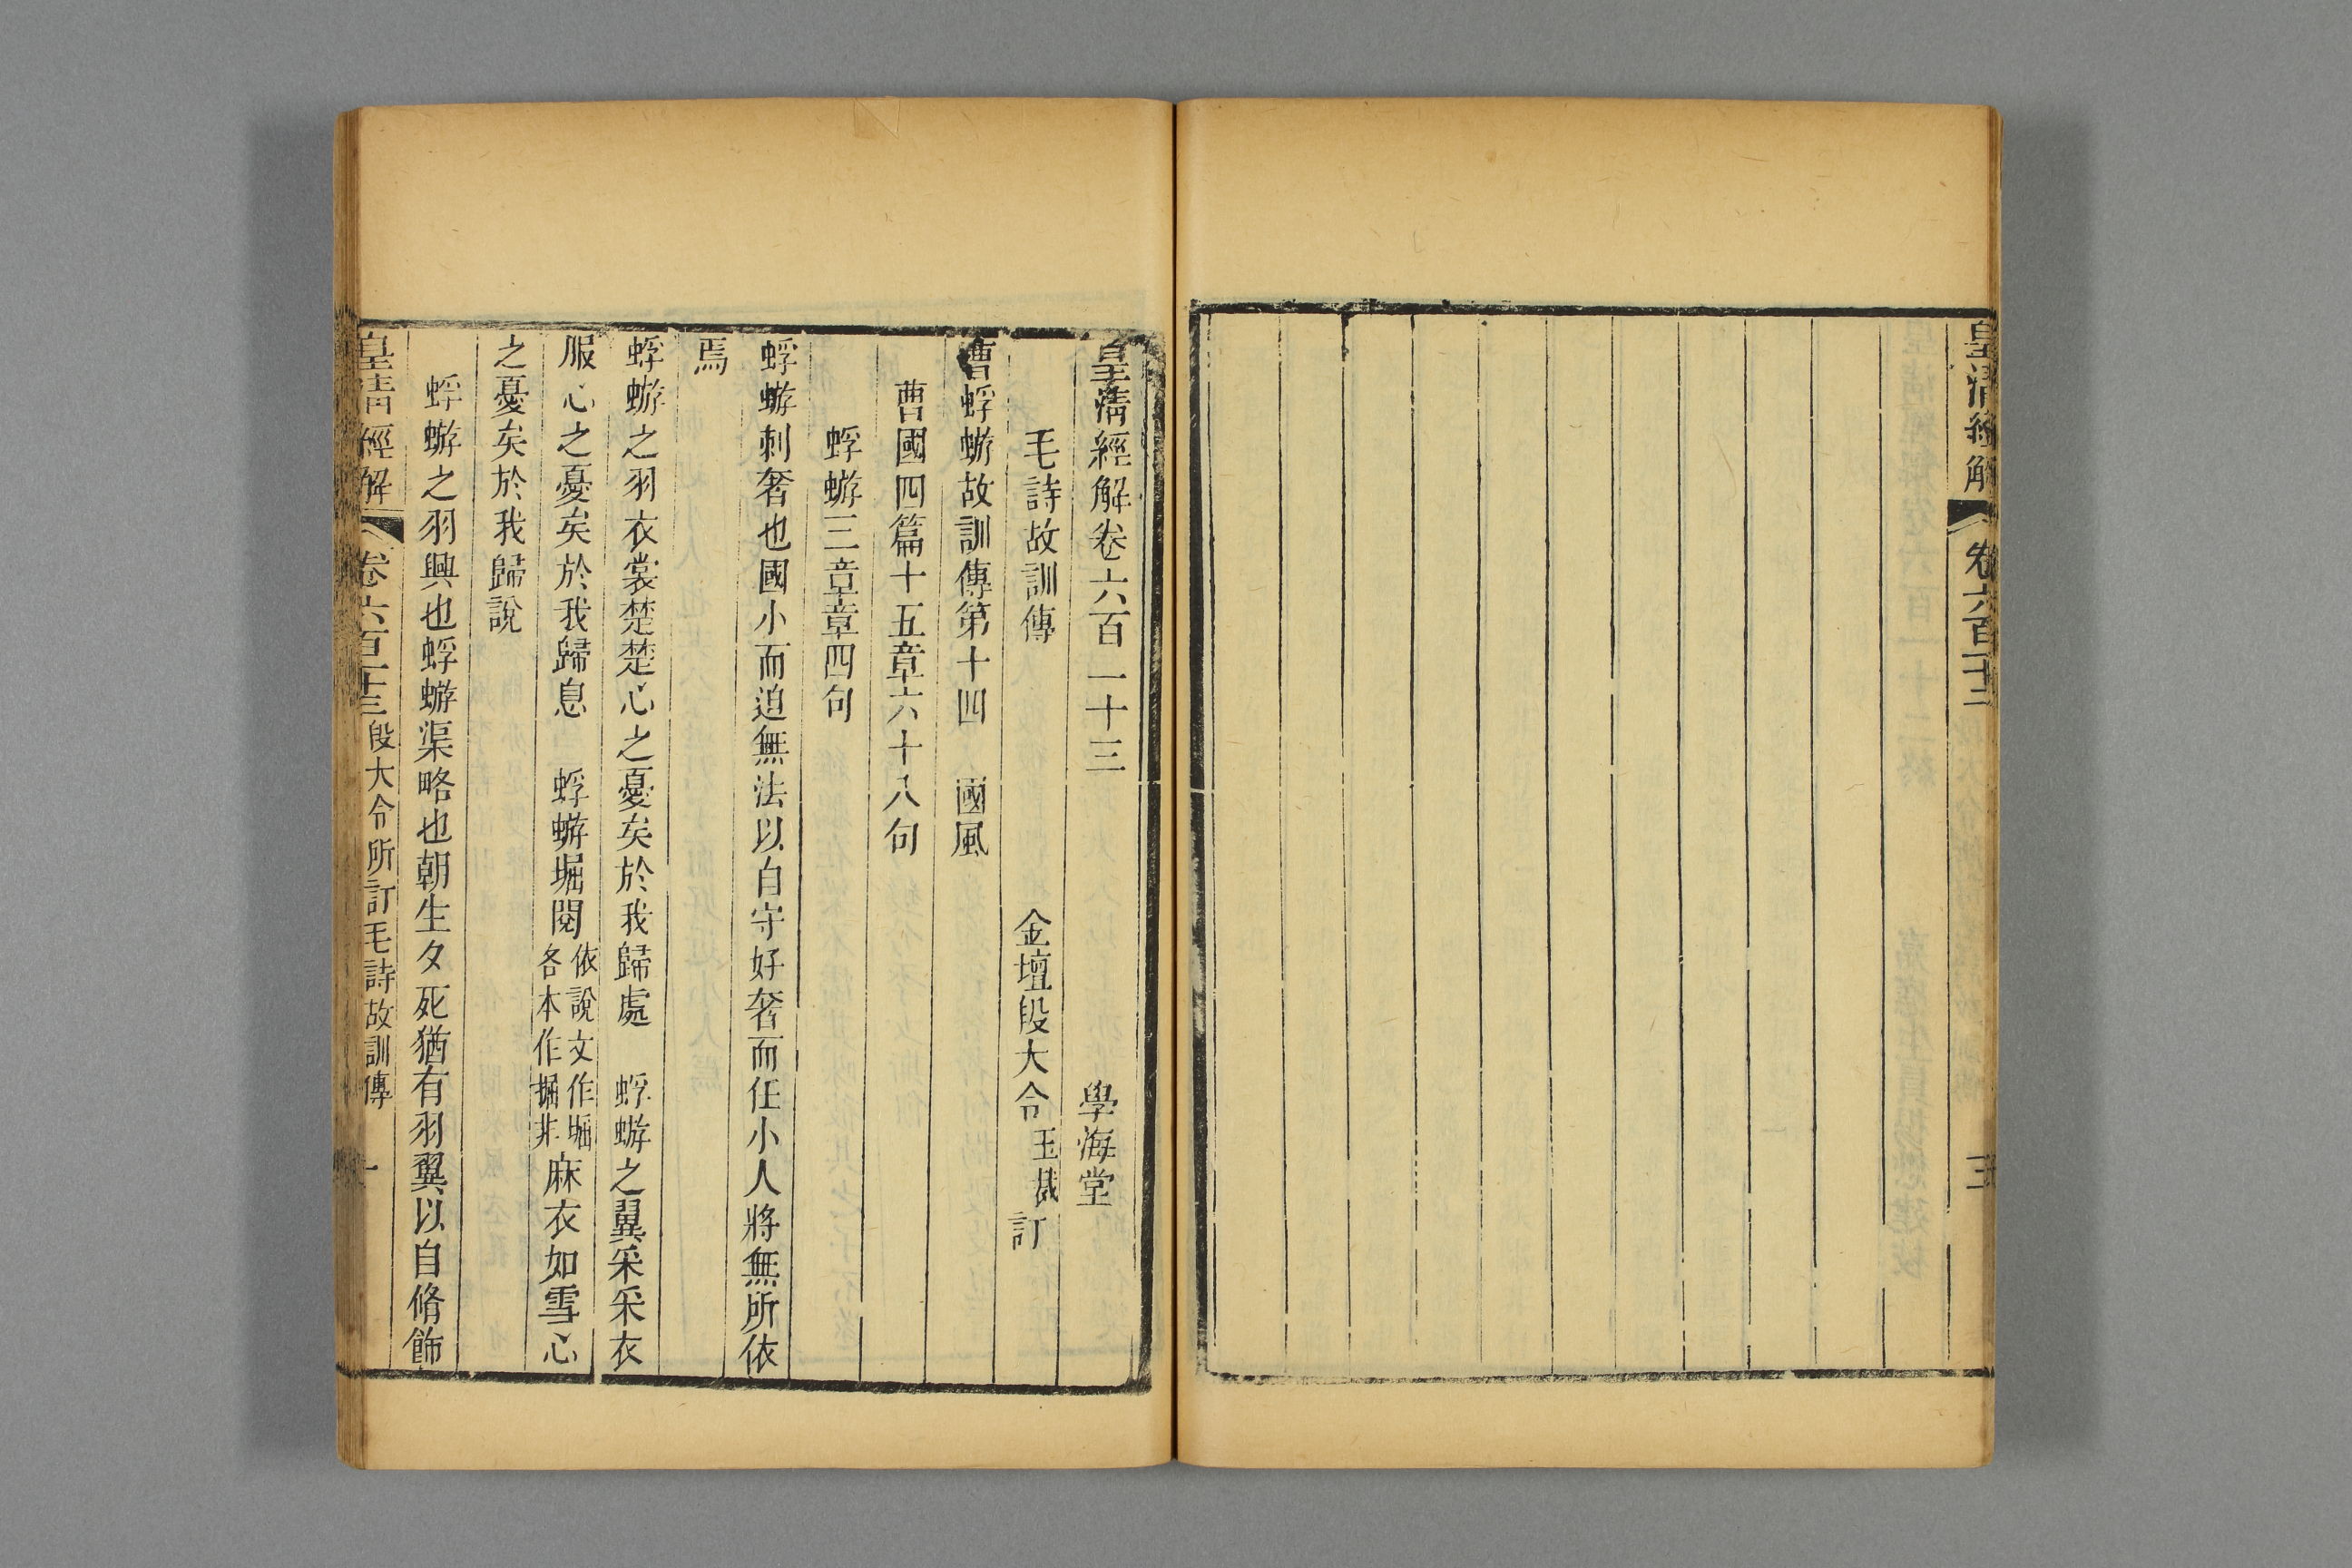 皇清經解
卷六百十二
三
皇清經解卷六百一十三
學海堂
毛詩故訓傳
金壇段大令玉裁訂
曹蜉蝣故訓傳第十四 國風
曹國四篇十五章六十八句
蜉蝣三章章四句
蜉蝣刺奢也國小而迫無法以自守好奢而任小人將無所依
焉
蜉蝣之羽衣裳楚楚心之憂矣於我歸處 蜉蝣之翼采采衣
服心之憂矣於我歸息 蜉蝣堀閱依說文作堀各本作掘非麻衣如雪心
之憂矣於我歸說
蜉蝣之羽興也蜉蝣渠略也朝生夕死猶有羽翼以自脩飾
皇清經解
卷六百十三
段大令所訂毛詩故訓傳
一